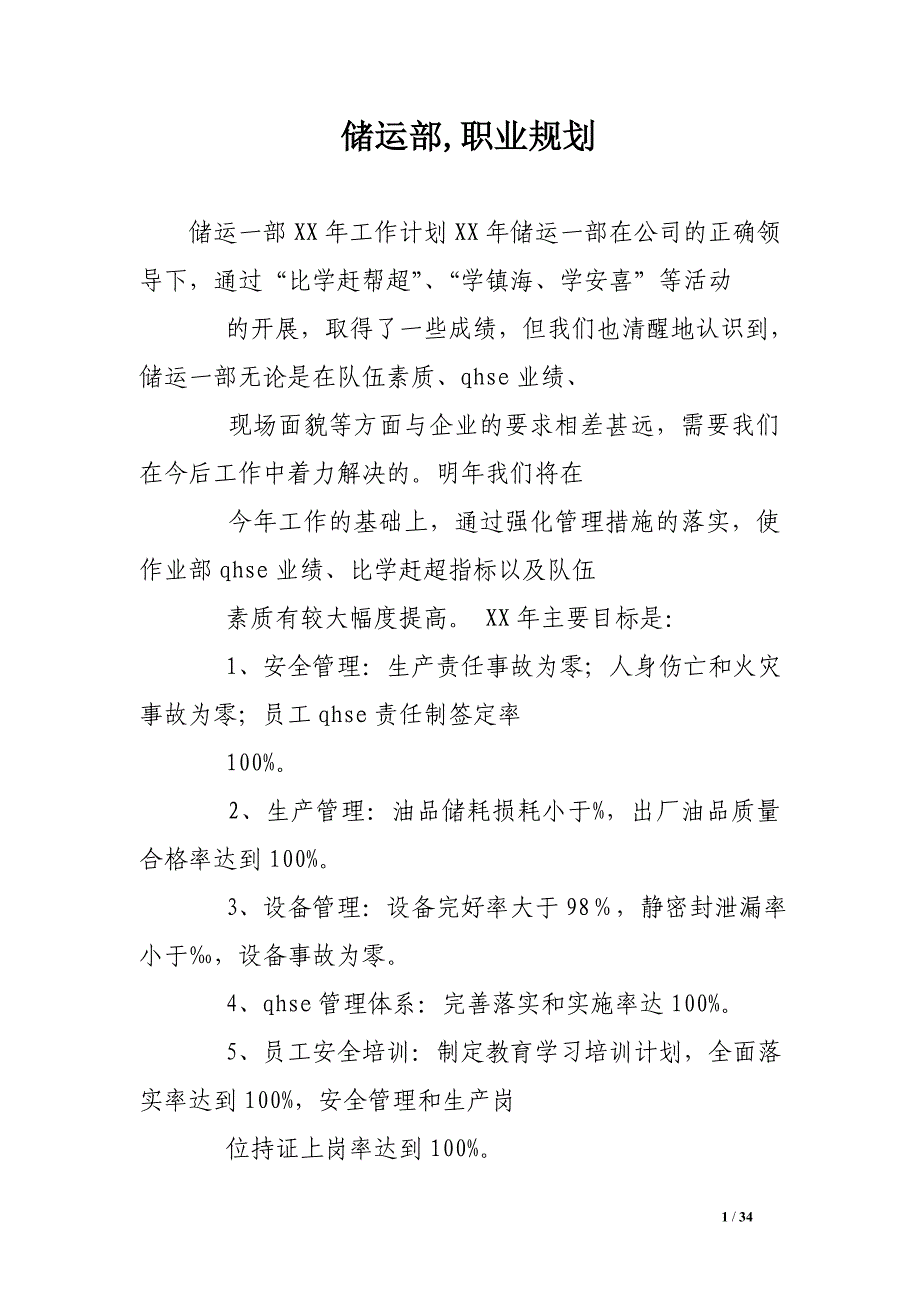 储运部,职业规划
储运一部 XX 年工作计划 XX 年储运一部在公司的正确领
导下，通过“比学赶帮超”、“学镇海、学安喜”等活动
的开展，取得了一些成绩，但我们也清醒地认识到，
储运一部无论是在队伍素质、qhse 业绩、
现场面貌等方面与企业的要求相差甚远，需要我们
在今后工作中着力解决的。明年我们将在
今年工作的基础上，通过强化管理措施的落实，使
作业部 qhse 业绩、比学赶超指标以及队伍
素质有较大幅度提高。 XX 年主要目标是：
1、安全管理：生产责任事故为零；人身伤亡和火灾
事故为零；员工 qhse 责任制签定率
100%。
2、生产管理：油品储耗损耗小于%，出厂油品质量
合格率达到 100%。
3、设备管理：设备完好率大于 98％，静密封泄漏率
小于‰，设备事故为零。
4、qhse 管理体系：完善落实和实施率达 100%。
5、员工安全培训：制定教育学习培训计划，全面落
实率达到 100%，安全管理和生产岗
位持证上岗率达到 100%。
1 / 34